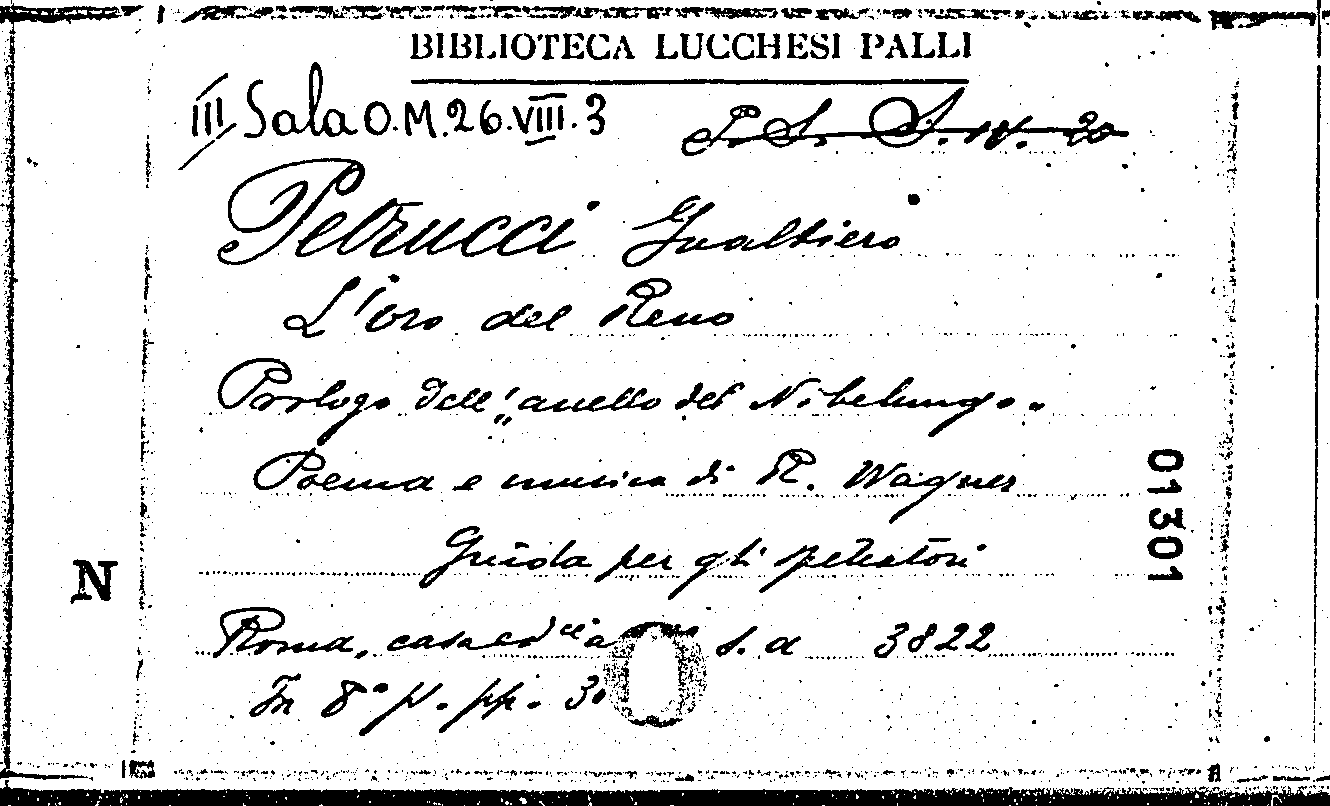 BIBLIOTECA LUCCHESI PALLI
III Sala O.M.26.VIII.3
P. S. S. IV. 20
Petrucci Gualtiero
L'oro del Reno
Prologo dell'„anello del Nibelungo".
Poema e musica di R. Wagner
Guida per gli spettatori
Roma, casa s. a 3822
In 8° p. pp. 30
N
01301